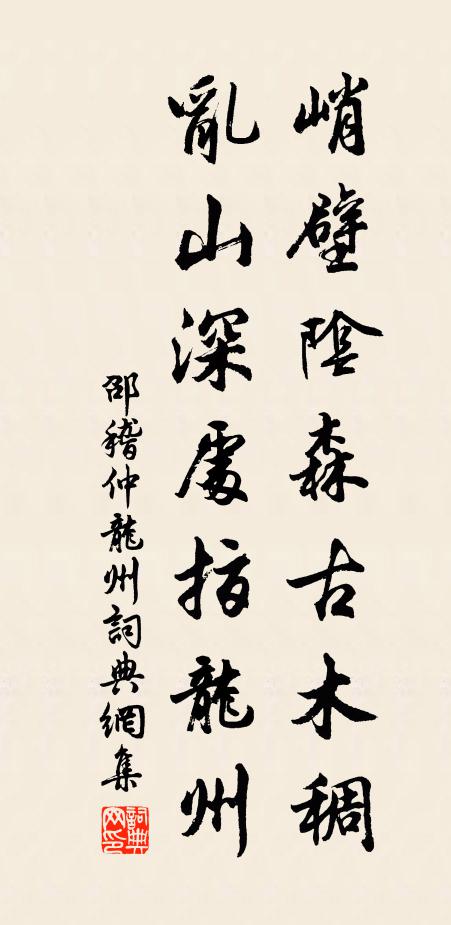 峭壁陰森古木稠
亂山深處指龍州
邵稽仲龍州詞典網集
詞典網印